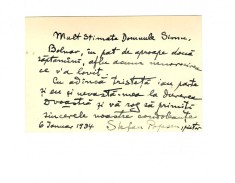 Mult Stimate Domnule Simu,
Bolnav, în pat de aproape două
săptămâni, aflu acum nenorocirea
ce v'a lovit.
Cu adîncă tristeță iau parte
și eu și nevastă-mea la durerea
D voastră și vă rog să primiți
sincerele noastre condoleanțe
6 Ianuar 1934. Stefan Popescu pictor